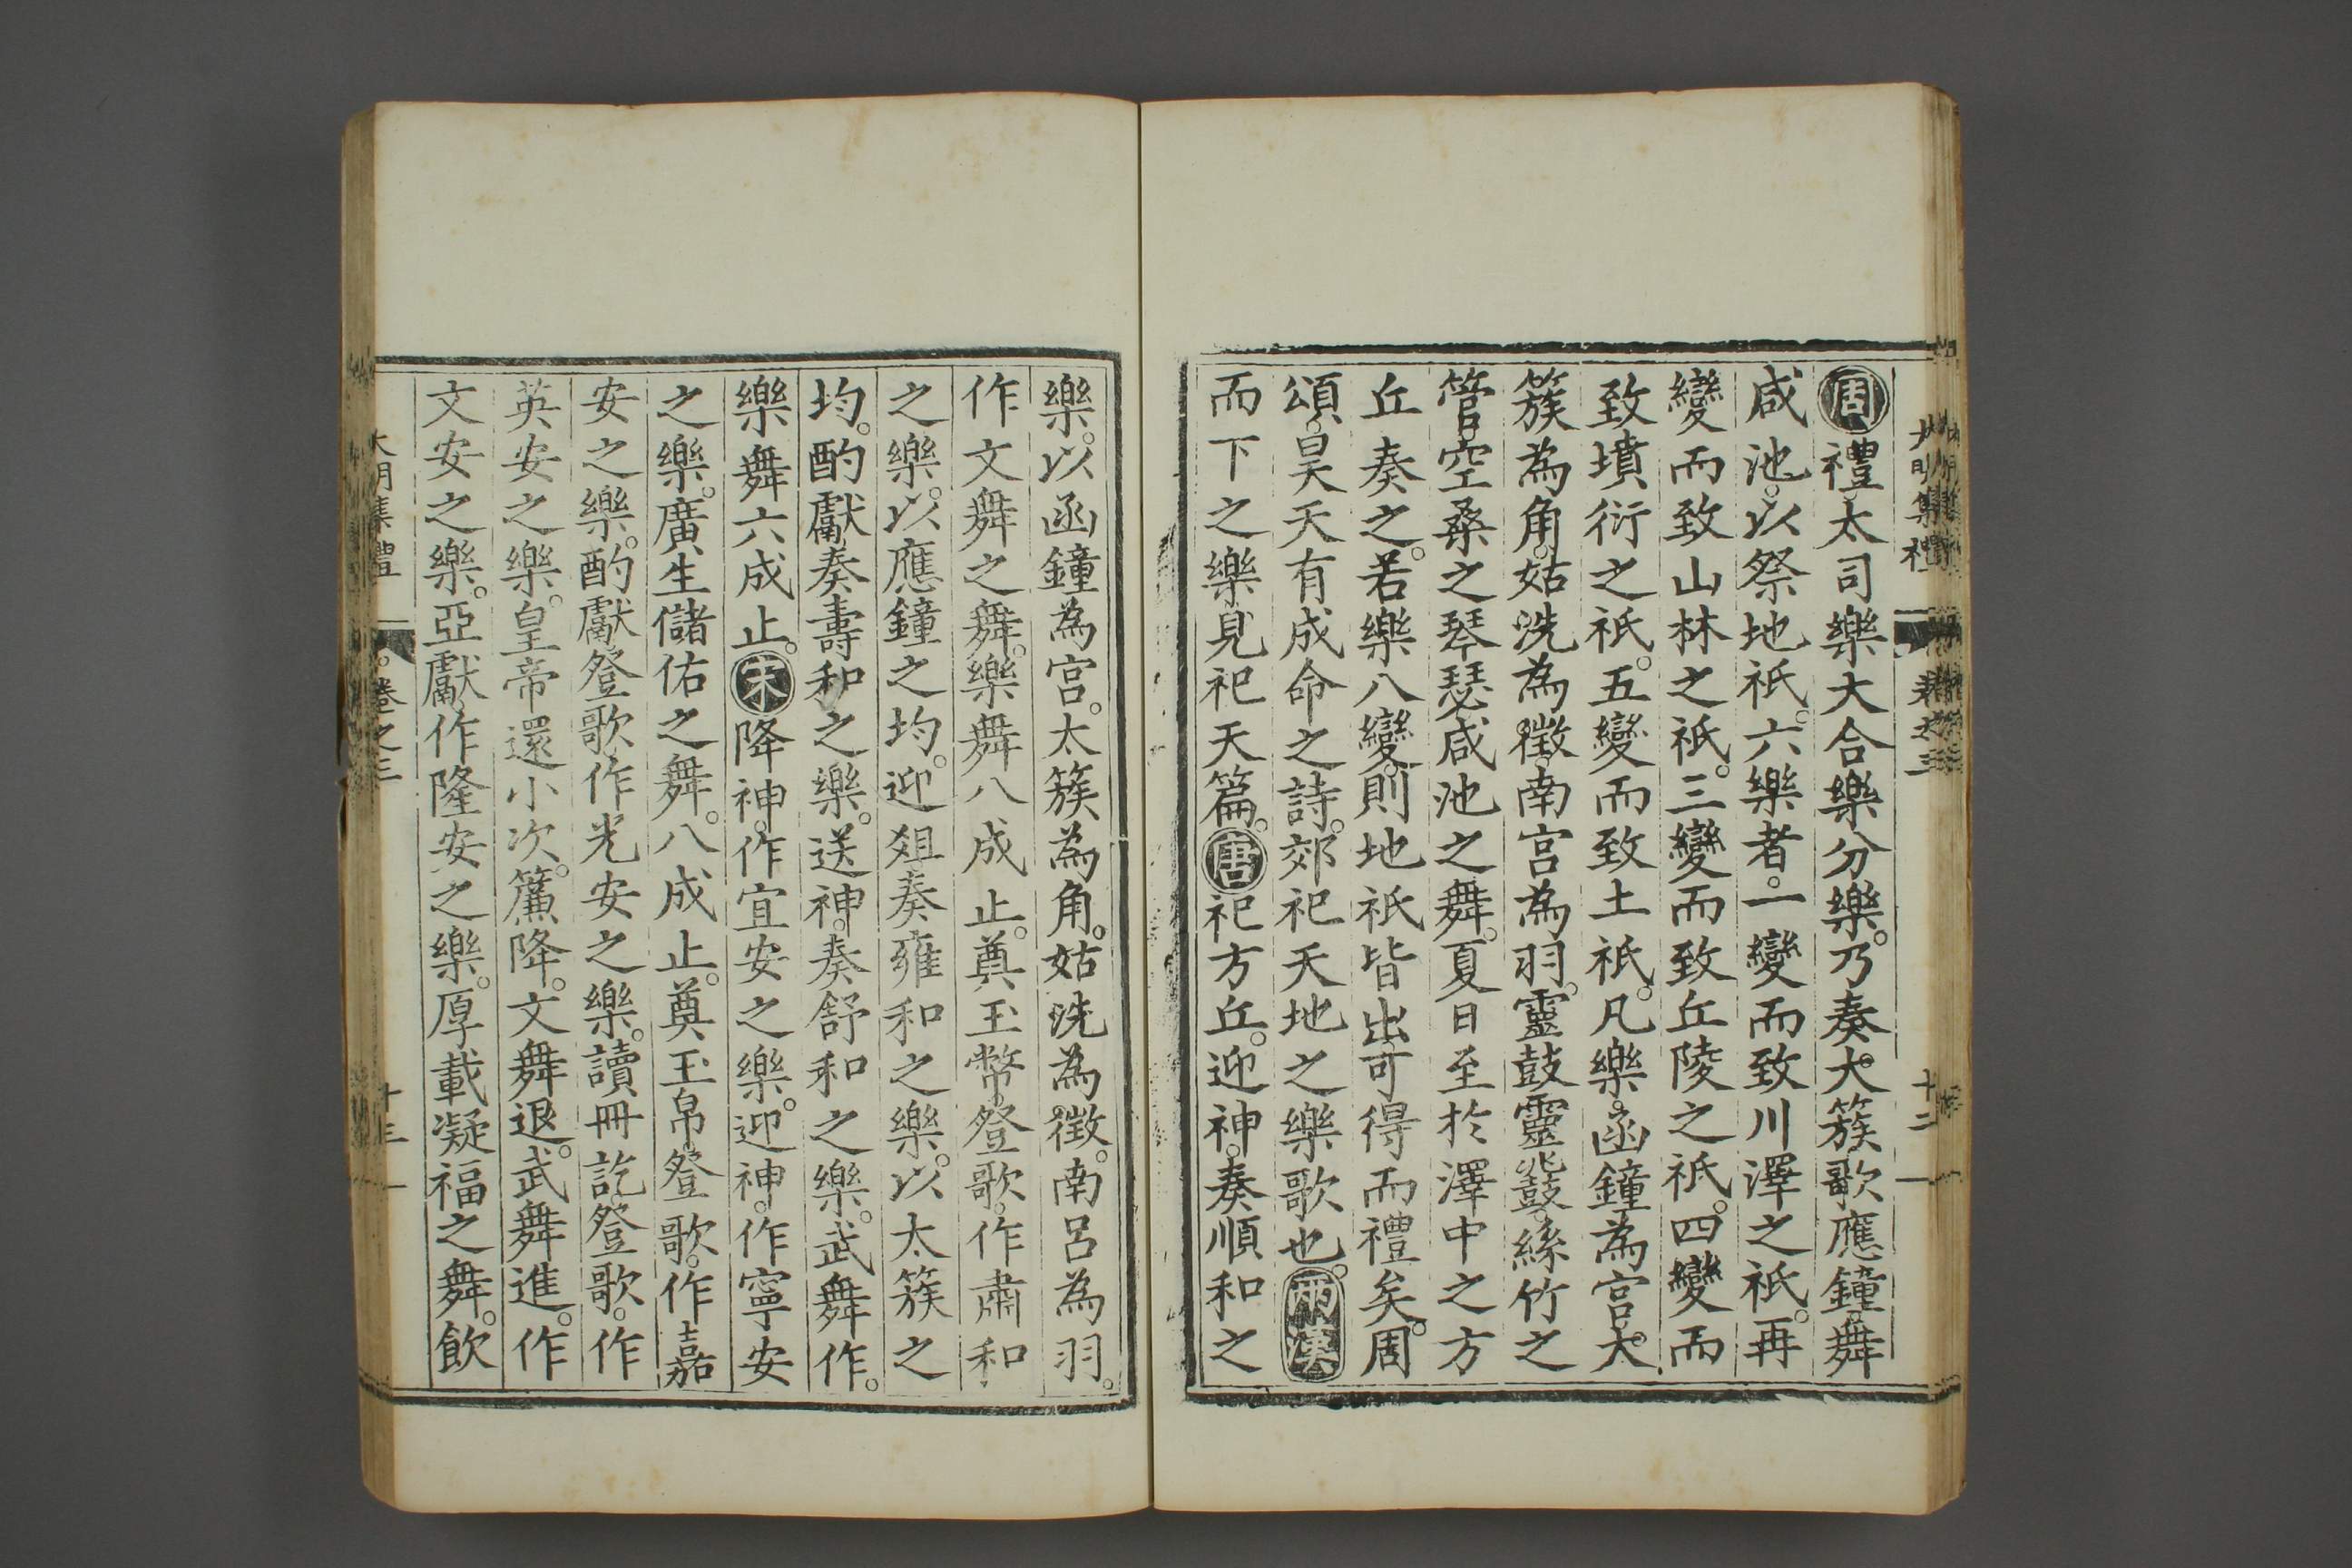 周禮太司樂大合樂分樂。乃奏大簇歌應鐘舞
咸池。以祭地祇。六樂者。一變而致川澤之祇。再
變而致山林之祇。三變而致丘陵之祇。四變而
致墳衍之祇。五變而致土祇。凡樂。函鐘為宮。大
簇為角。姑洗為徵。南宮為羽。靈鼓靈鼗。絲竹之
管。空桑之琴瑟。咸池之舞。夏日至於澤中之方
丘奏之。若樂八變。則地祇皆出。可得而禮矣。周
頌。昊天有成命之詩。郊祀天地之樂歌也。兩漢
而下之樂見祀天篇。唐祀方丘。迎神。奏順和之
樂。以函鐘為宮。太簇為角。姑洗為徵。南呂為羽。
作文舞之舞。樂舞八成止。奠玉幣。登歌。作肅和
之樂。以應鐘之均。迎俎奏雍和之樂。以太簇之
均。酌獻奏壽和之樂。送神。奏舒和之樂。武舞作。
樂舞六成止。宋降神。作宜安之樂。迎神。作寧安
之樂。廣生儲佑之舞。八成止。奠玉帛。登歌。作嘉
安之樂。酌獻登歌作光安之樂。讀冊訖。登歌。作
英安之樂。皇帝還小次。簾降。文舞退。武舞進。作
文安之樂。亞獻。作隆安之樂。厚載凝福之舞。飲
大明集禮 卷之三 十三